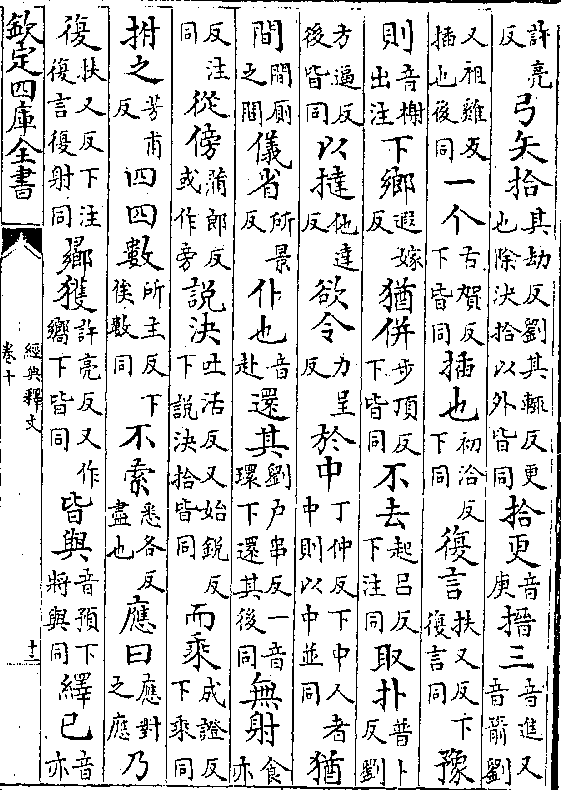 許亮反弓矢拾其劫反劉其輒反更也除決拾以外皆同拾更音庚搢三音進又音箭劉
又祖雞反插也後同一个古賀反下皆同插也初洽反下同復言扶又反下復言同豫
則音榭出注下鄉遐嫁反猶併步頂反下皆同不去起呂反下注同取扑普卜反劉
方逼反後皆同以撻他達反欲令力呈反於中丁仲反下中人者中則以中並同猶
間間厠之間儀省所景反仆也音赴還其劉户串反一音環下還其後同無射食亦
反注同從傍蒲郎反或作旁說決吐活反又始銳反下說決拾皆同而乘成證反下乘同
拊之芳甫反四四數所主反下俟數同不索悉各反盡也應曰應對之應乃
復扶又反下注復言復射同鄉獲許亮反又作嚮下皆同皆與音預下將與同繹已音亦
欽定四庫全書
經典釋文
卷十